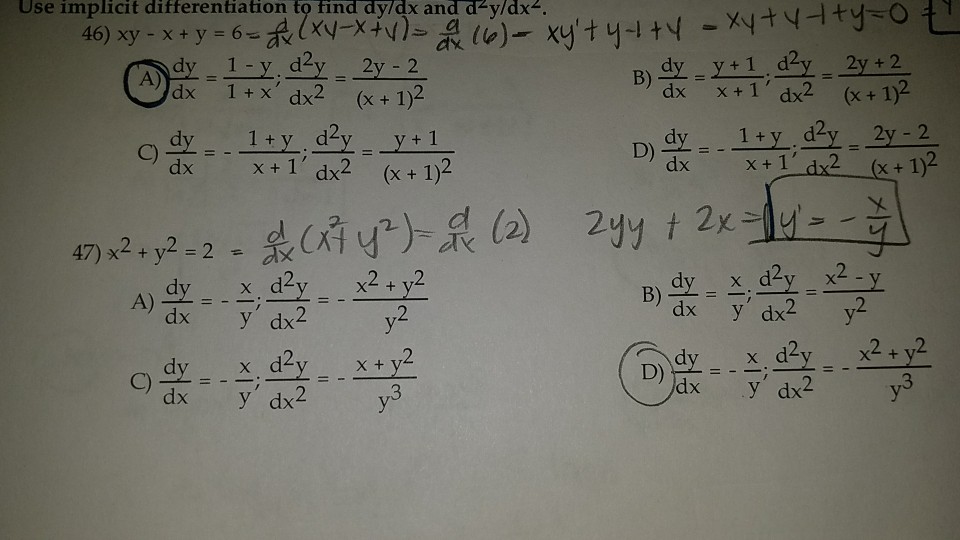 Use implicit differentiation to find dy/dx and d²y/dx².
46) xy - x + y = 6 = d/dx (xy-x+y) = d/dx (6) - xy'+y-1+y - xy+y-1+y=0
A) dy/dx = (1 - y)/(1 + x); d²y/dx² = (2y - 2)/(x + 1)² B) dy/dx = (y + 1)/(x + 1); d²y/dx² = (2y + 2)/(x + 1)²
C) dy/dx = - (1 + y)/(x + 1); d²y/dx² = (y + 1)/(x + 1)² D) dy/dx = - (1 + y)/(x + 1); d²y/dx² = (2y - 2)/(x + 1)²
47) x² + y² = 2 = d/dx (x²+y²) = d/dx (2) 2yy + 2x = y' = - x/y
A) dy/dx = - x/y; d²y/dx² = - (x² + y²)/y² B) dy/dx = x/y; d²y/dx² = (x² - y)/y²
C) dy/dx = - x/y; d²y/dx² = - (x + y²)/y³ D) dy/dx = - x/y; d²y/dx² = - (x² + y²)/y³